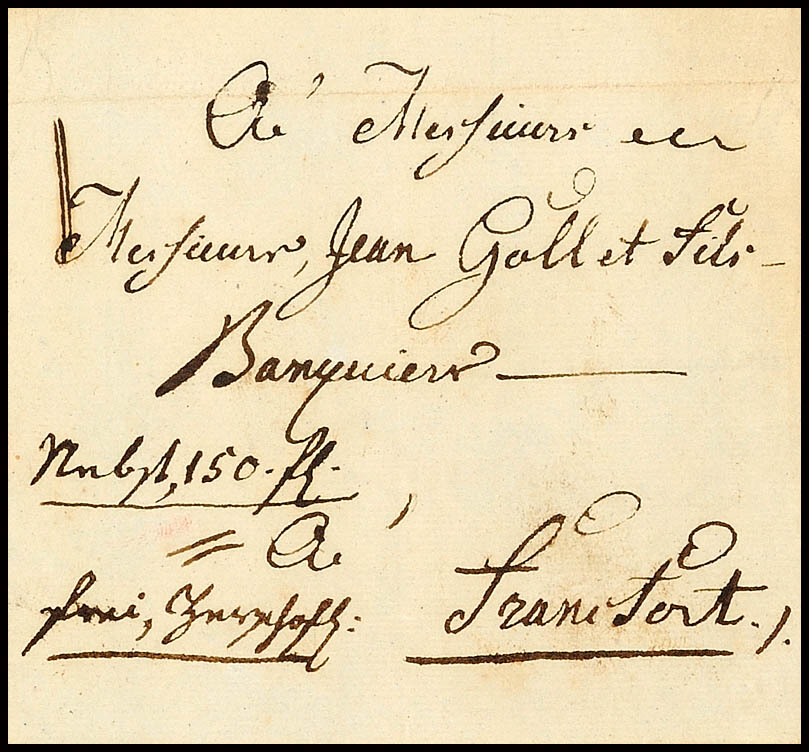 A Messieurs
Messieurs, Jean Goll et Fils
Banquiers
Nebst, 150. fl.
A
frei,
Francfort.